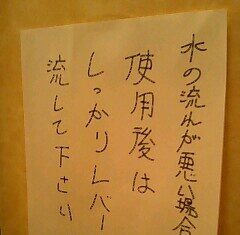 水の流れが悪い場合
使用後は
しっかりレバー
流して下さい